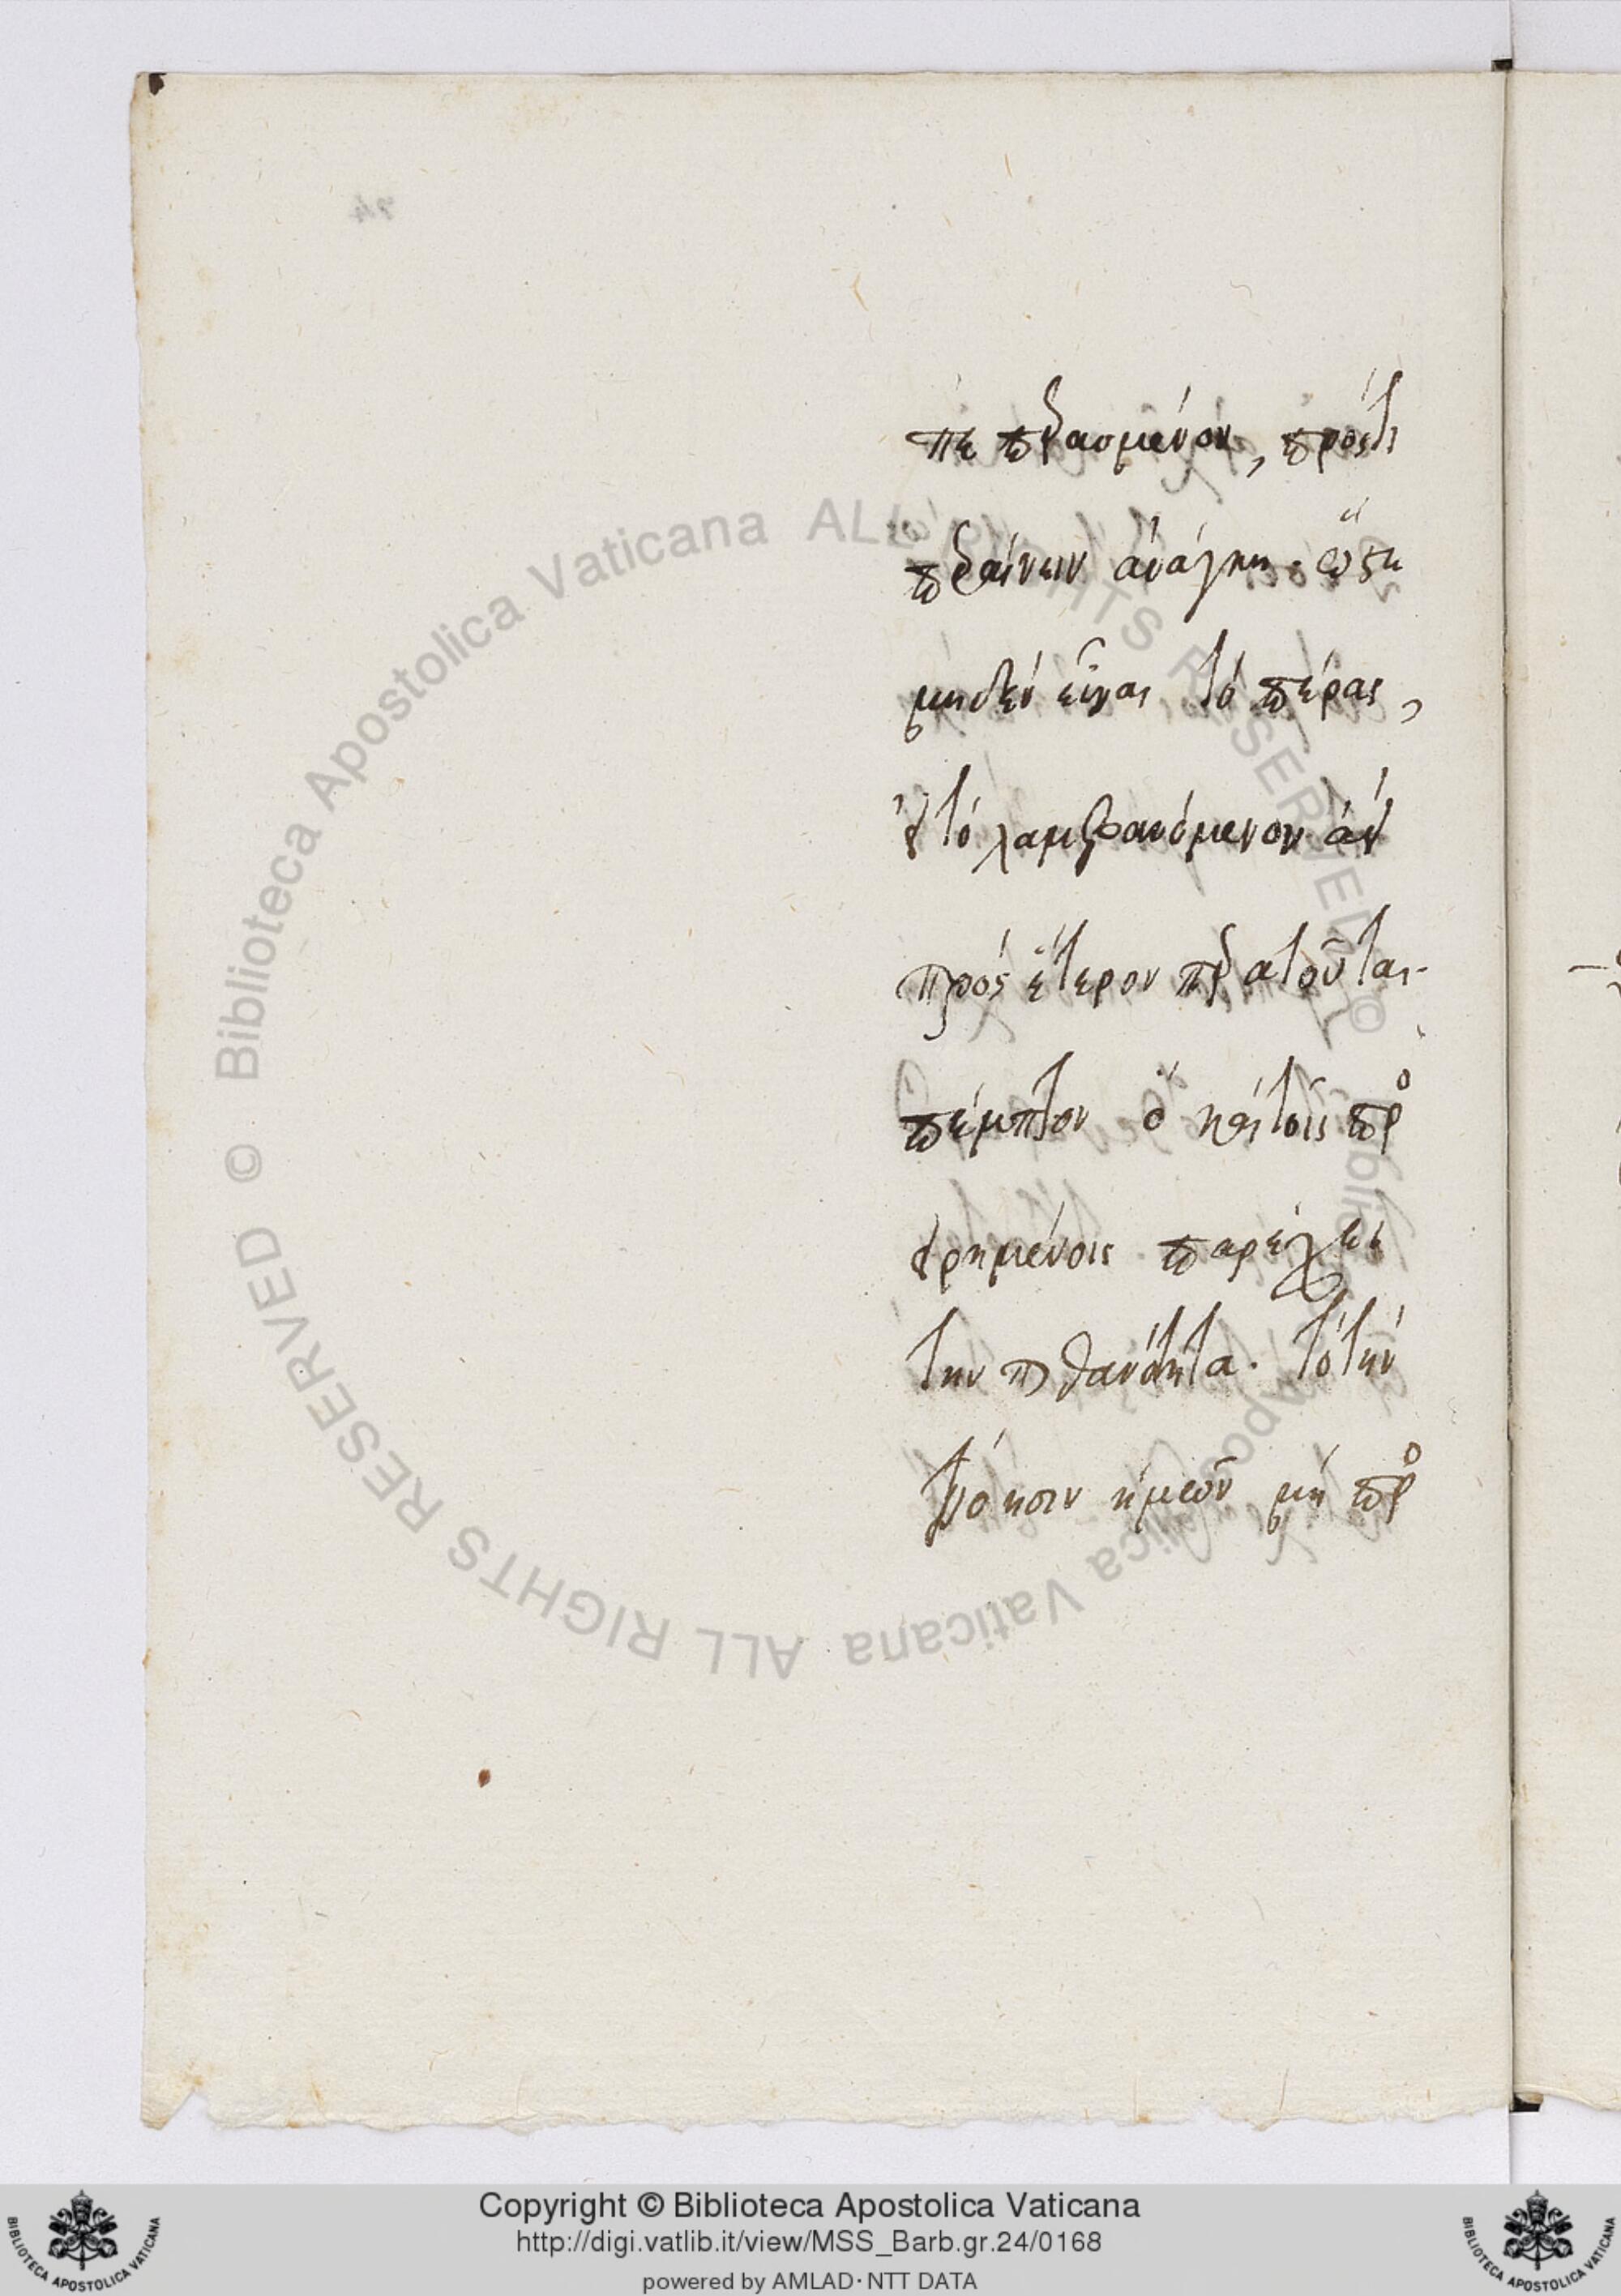 πεπερασμένον, πρός τι
περαίνειν ἀνάγκη. ὥστε
μηδέν εἶναι τὸ πέρας,
εἰ τὸ λαμβανόμενον ἀεί
πρὸς ἕτερον περατοῦται.
πέμπτον ὃ καὶ τοῖς προ
ειρημένοις παρέχει
την πιθανότητα. τὸ τὴν
νόησιν ἡμῶν μὴ προ
74
© Biblioteca Apostolica Vaticana ALL RIGHTS RESERVED © Biblioteca Apostolica Vaticana ALL RIGHTS RESERVED
Copyright © Biblioteca Apostolica Vaticana
http://digi.vatlib.it/view/MSS_Barb.gr.24/0168
powered by AMLAD·NTT DATA
BIBLIOTECA APOSTOLICA VATICANA
BIBLIOTECA APOSTOLICA VATICANA